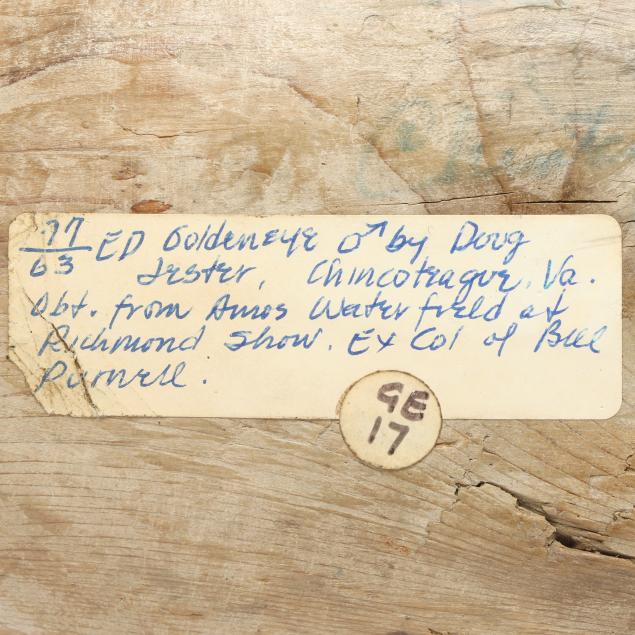 77 ED Goldeneye ♂ by Doug
63 Jester, Chincoteague, Va.
Obt. from Amos Waterfield at
Richmond Show. Ex Col of Bill
Purnell.
GE
17